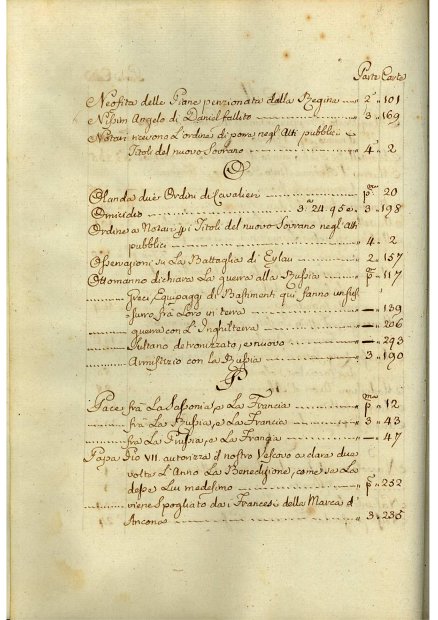 Parte Carte
Neofita delle Piane penzionata dalla Regina 2ª 101
Nissim Angelo di Daniel fallito 3 " 169
Notari ricevono l'ordine di porre negl'Atti pubblici i
Titoli del nuovo Sovrano 4ª 2
O
Olanda due Ordini di Cavalieri pma 20
Omicidio 3.ª 24. 95 e 3 " 198
Ordine a Notari pi Titoli del nuovo Sovrano negl'Atti
pubblici 4. 2
Osservazioni su la Battaglia di Eylau 2 " 157
Ottomanno dichiara la guerra alla Russia pª 117
Greci, Equipaggi di Bastimenti qui fanno
furo frà loro in terra — " 139
guerra con l'Inghilterra — " 206
Sultano detronizzato, e nuovo — " 293
Armistizio con la Russia 3 " 190
P
Pace frà la Sassonia, e la Francia pma 12
frà la Russia, e la Francia 3 " 43
fra la Prussia, e la Francia — " 47
Papa Pio VII. autorizza il nostro Vescovo a dare due
volte l'Anno la Benedizione, come se la
desse lui medesimo pª 252
viene spogliato dai Francesi della Marca d'
Ancona 3 " 235